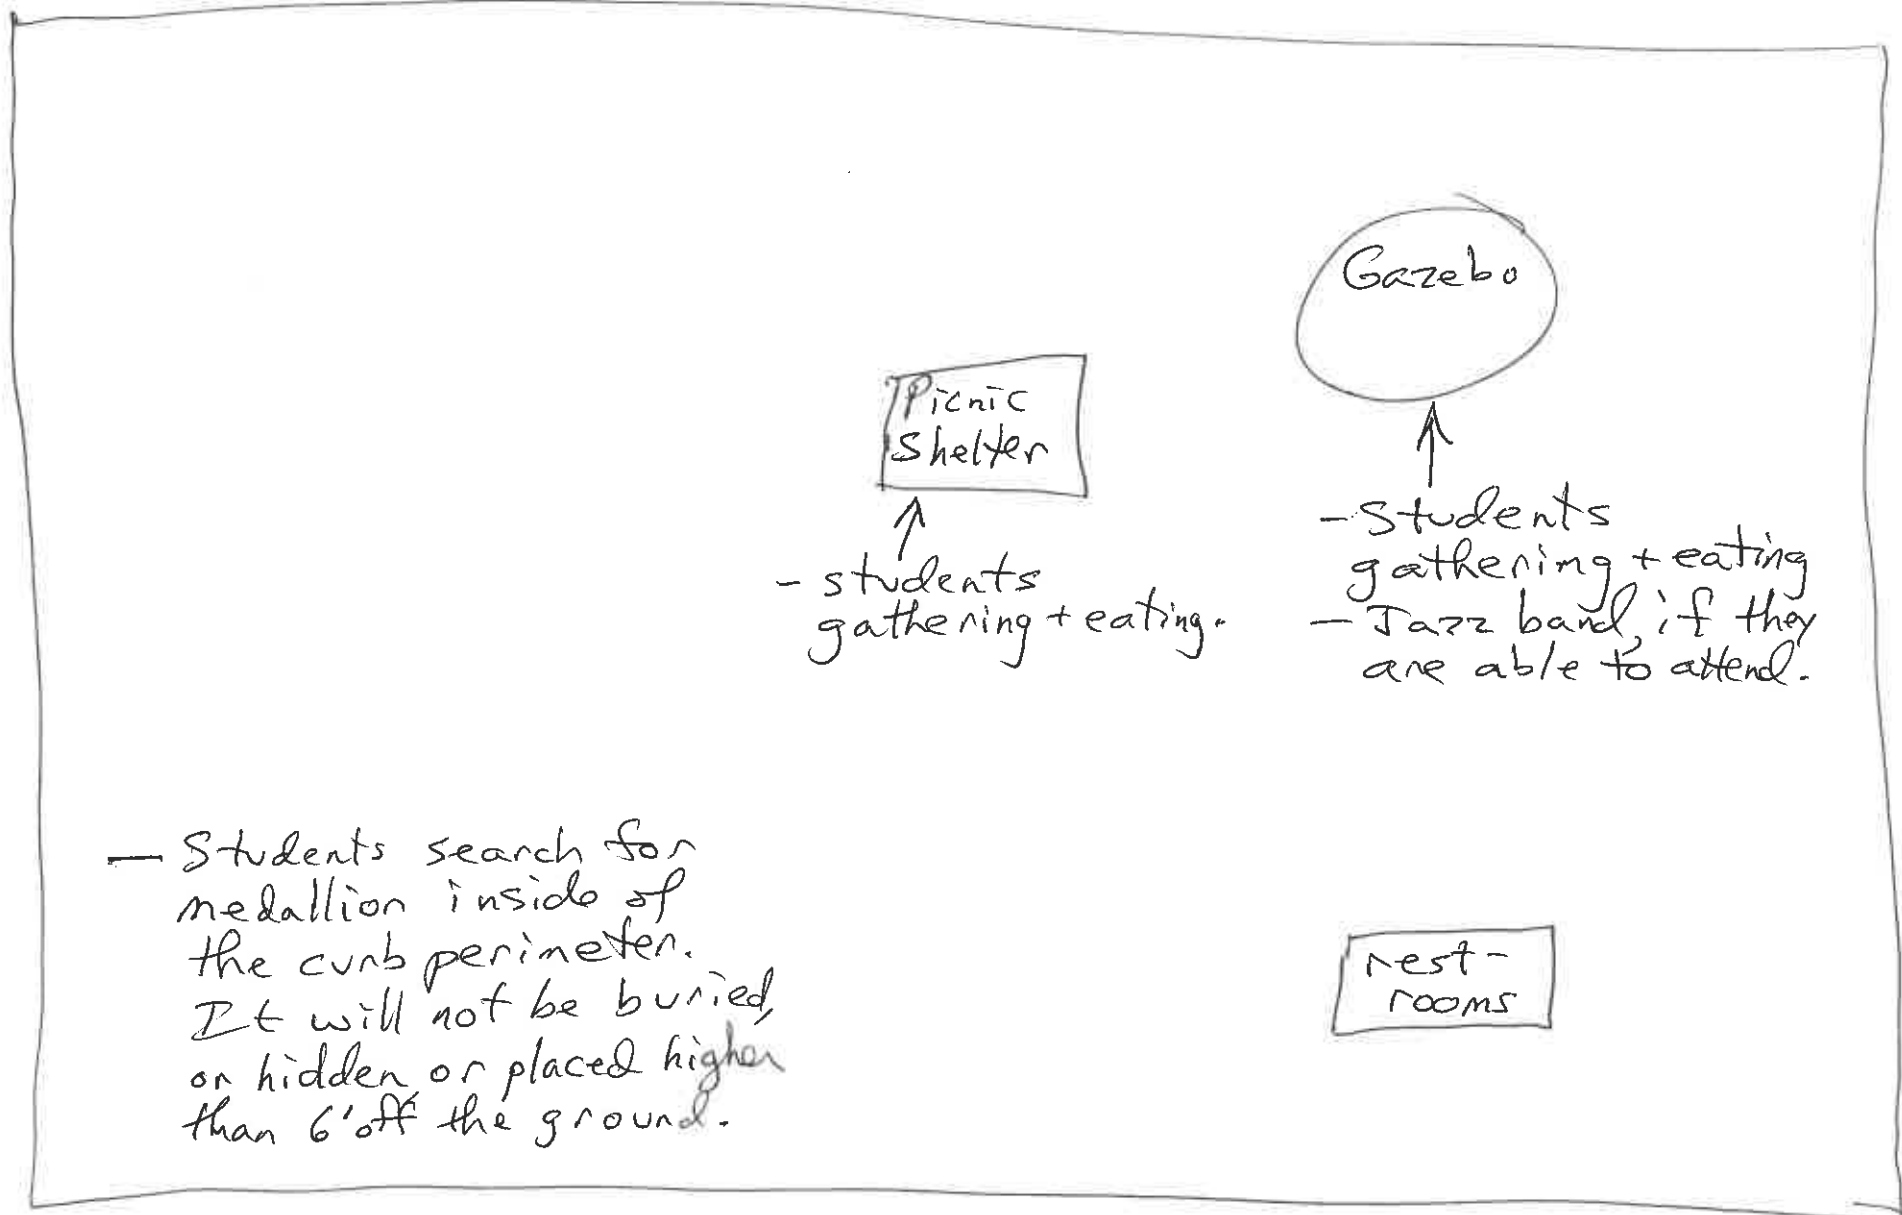 Gazebo
Picnic
Shelter
- Students
gathering + eating
- Jazz band, if they
are able to attend.
- students
gathering + eating.
- Students search for
medallion inside of
the curb perimeter.
It will not be buried,
or hidden, or placed higher
than 6' off the ground.
rest-
rooms